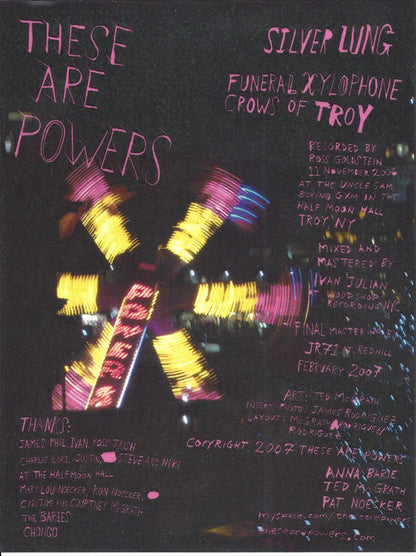 THESE
ARE
POWERS
SILVER LUNG
FUNERAL XYLOPHONE
CROWS OF TROY
RECORDED BY
ROSS GOLDSTEIN
11 NOVEMBER 2006
AT THE UNCLE SAM
BOXING GYM IN THE
HALF MOON HALL
TROY NY
MIXED AND
MASTERED BY
IVAN JULIAN
RECORDING NY
FINAL MASTER
JR71 AT REDHILL
FEBRUARY 2007
ART: TED McGRATH
INSERT PHOTO: JAMES RODRIGUEZ
LAYOUT: McGRATH
RODRIGUEZ
COPYRIGHT 2007 THESE ARE POWERS
ANNA BARIE
TED McGRATH
PAT NOECKER
myspace.com/
thesearepowers.com
THANKS:
JAMES PHIL IVAN ROSS TRISH
CHARLIE LORI JUSTIN STEVE AND NIKI
AT THE HALFMOON HALL
MARY LOU NOECKER RON NOECKER
CYD TIM AND COURTNEY McGRATH
THE BARIES
CHONGO